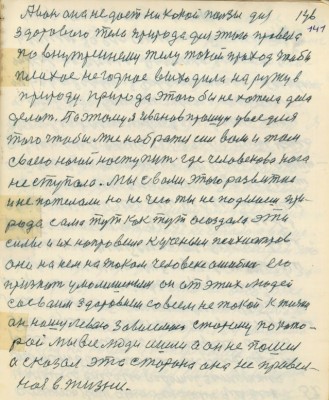 А как она не дает никакой пользы для 146
здорового тела природа для этого провела 141
по внутреннему телу такой проход чтобы
плохое негодное выходила на ружу в
природу. Природа этого бы не хотела дела
делать. Поэтому я Иванов прошу
того чтобы мне на сил вам и там
своею ногой наступит где человекова нога
не ступала. Мы с вами этого развития
и не хотели но не чего ты не поделаеш при-
рода сама тут как тут создала эти
силы и их направела к ученым психиатров
они на нем на таком человеке ошиблись его
признали умолишенным он от этих людей
своим здоровием совсем не такой к
он нашу левую завилисту сторону по кото-
рой мы все люди ишли а он не пошел
а сказал эта сторона она не правель-
ная в жизни.